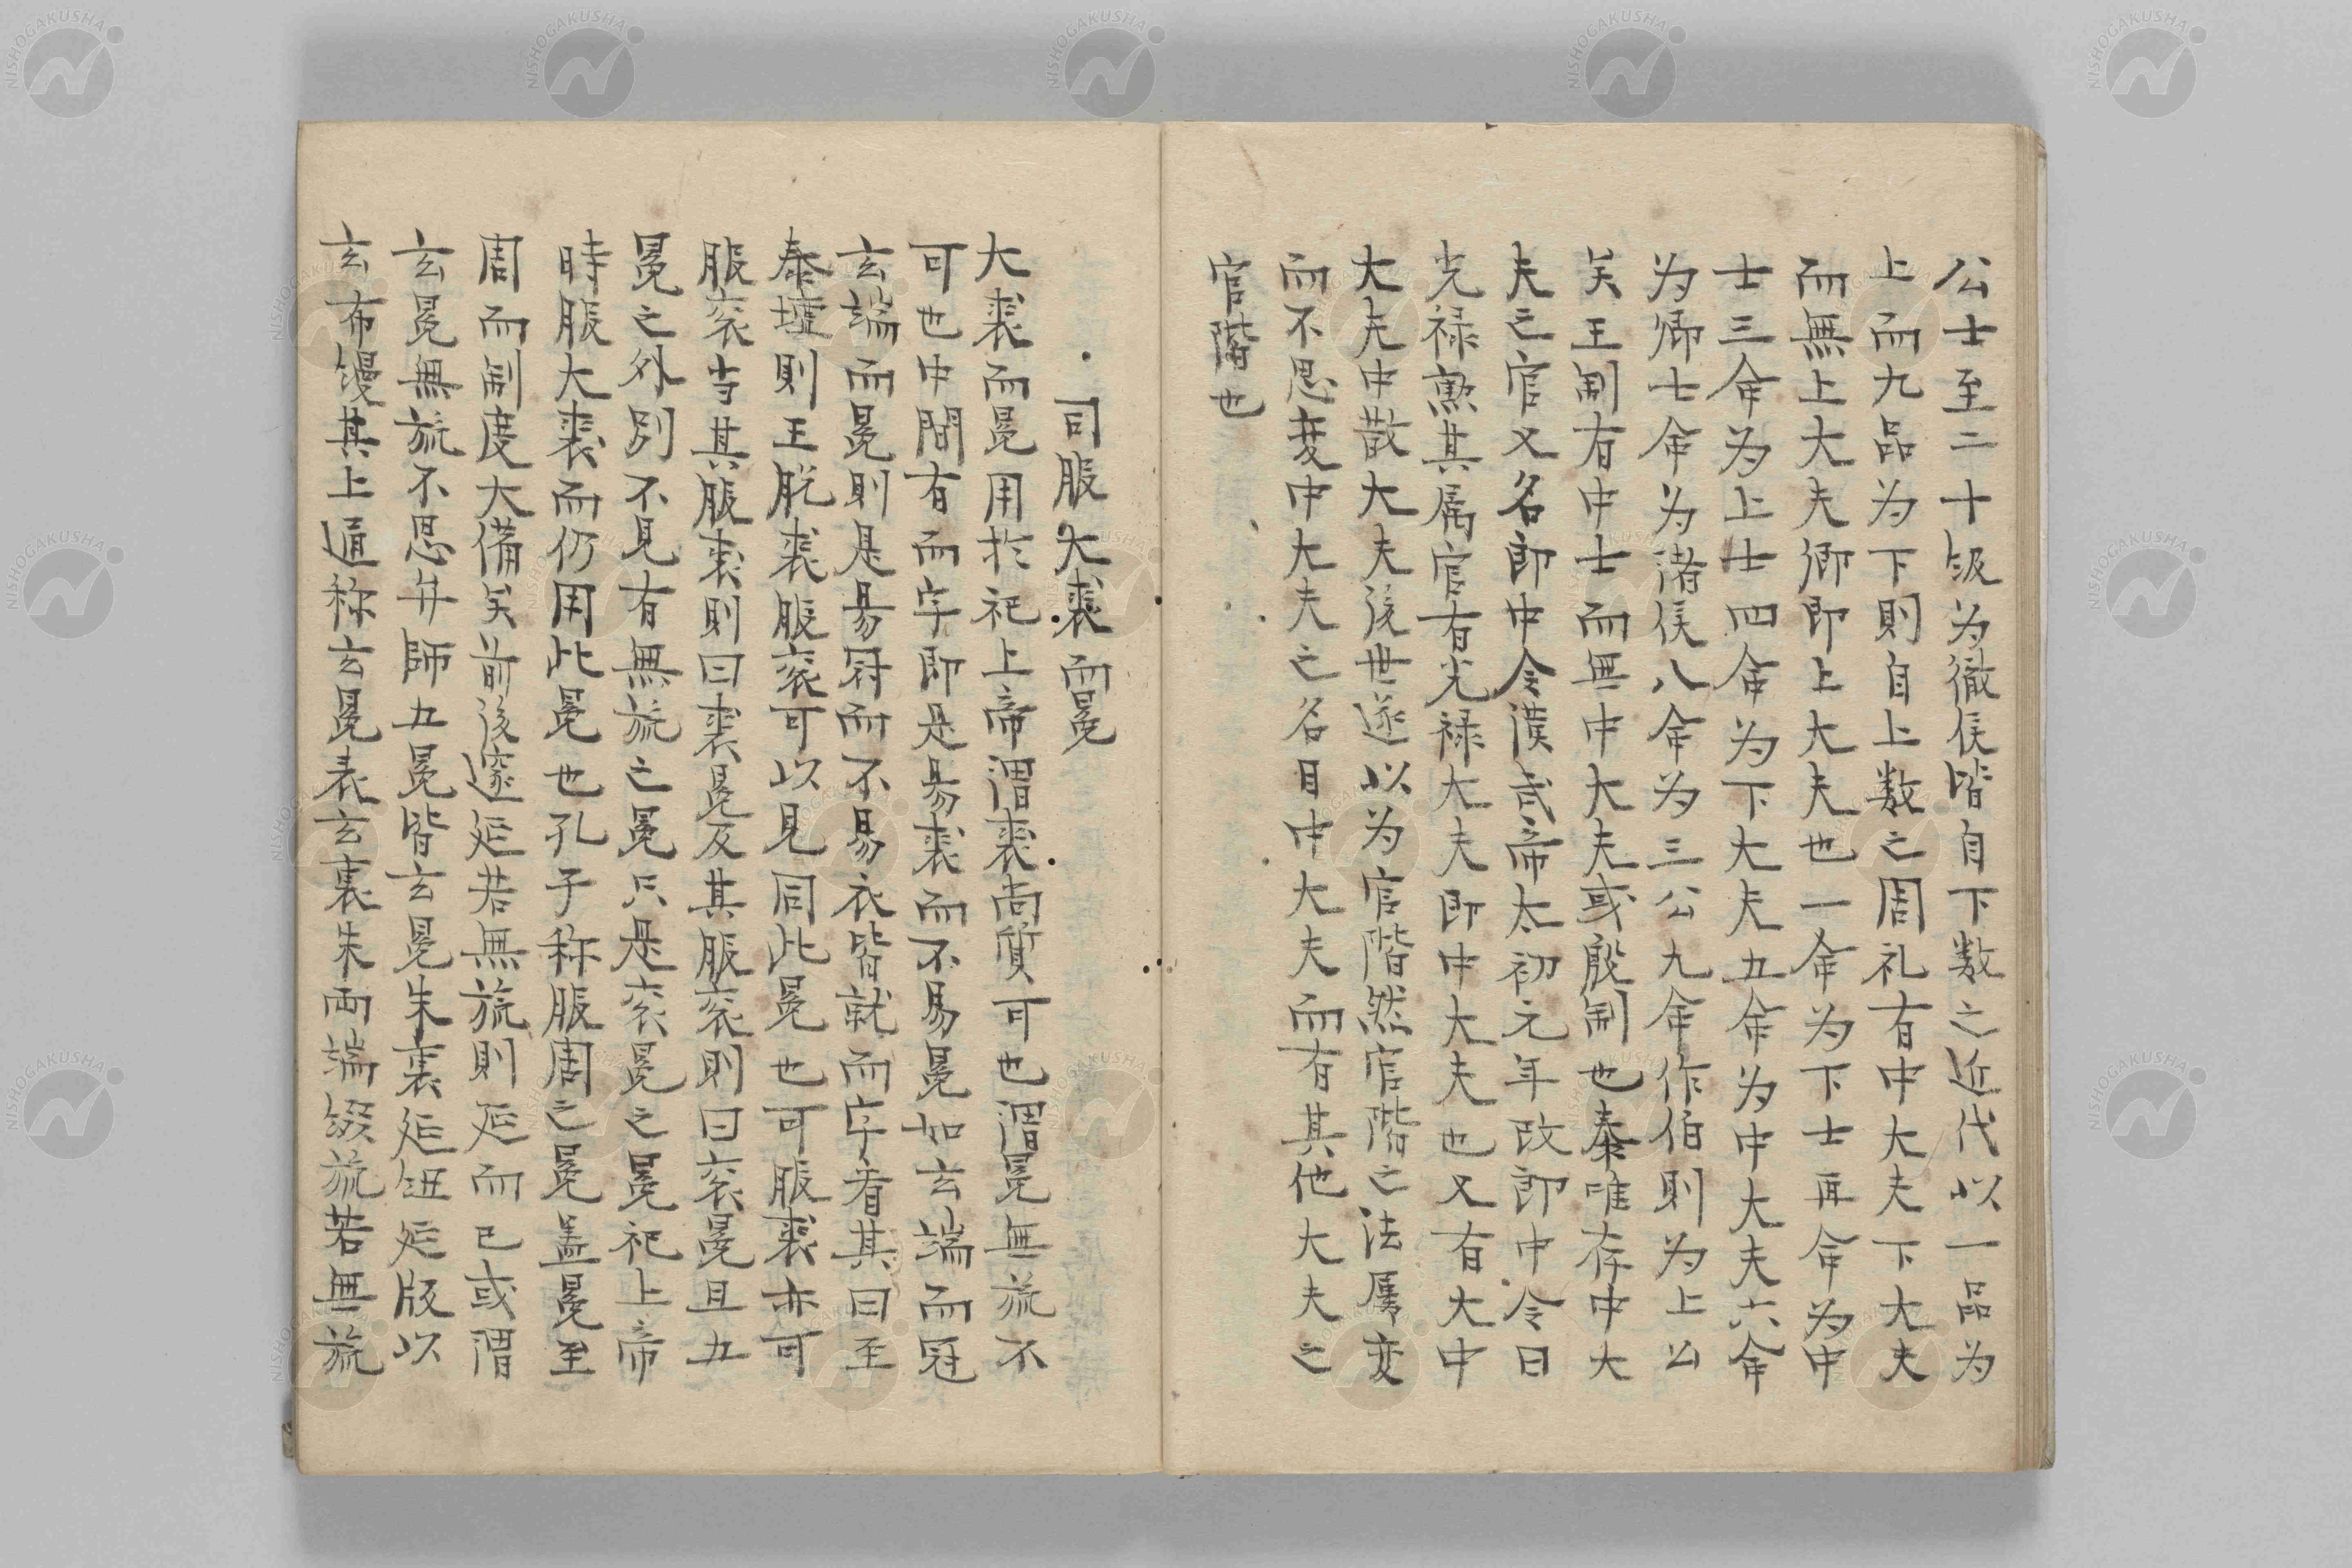 公士至二十級为徹侯皆自下数之近代以一品为
上而九品为下則自上数之周礼有中大夫下大夫
而無上大夫卿即上大夫也一命为下士再命为中
士三命为上士四命为下大夫五命为中大夫六命
为卿七命为諸侯八命为三公九命作伯則为上公
矣王制有中士而無中大夫或殷制也秦唯存中大
夫之官又名郎中令漢武帝太初元年改郎中令曰
光禄勲其属官有光禄大夫即中大夫也又有大中
大夫中散大夫後世遂以为官階然官階之法屢変
而不思変中大夫之名目中大夫而有其他大夫之
官階也
司服大裘而冕
大裘而冕用於祀上帝謂裘尚質可也謂冕無旒不
可也中間有而字即是易裘而不易冕如玄端而冠
玄端而冕則是易冠而不易衣皆就而字看其曰至
泰壇則王脱裘服衮可以見同此冕也可服裘亦可
服衮当其服裘則曰裘冕及其服衮則曰衮冕且五
冕之外別不見有無旒之冕只是衮冕之冕祀上帝
時服大裘而仍用此冕也孔子称服周之冕盖冕至
周而制度大備矣前後邃延若無旒則延而已或謂
玄冕無旒不思弁師五冕皆玄冕朱裏延紐延版以
玄布縵其上通称玄冕表玄裏朱両端綴旒若無旒